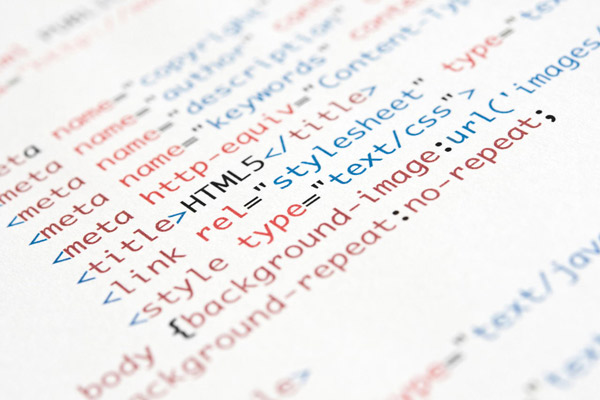 name="copyright"
eta name="author"
meta name="description"
<meta name="keywords"
<meta http-equiv="Content-Type"
<title>HTML5</title>
<link rel="stylesheet" type="tex
<style type="text/css">
body {background-image:url('images/
background-repeat:no-repeat;
le>
ype="text/java
"text/